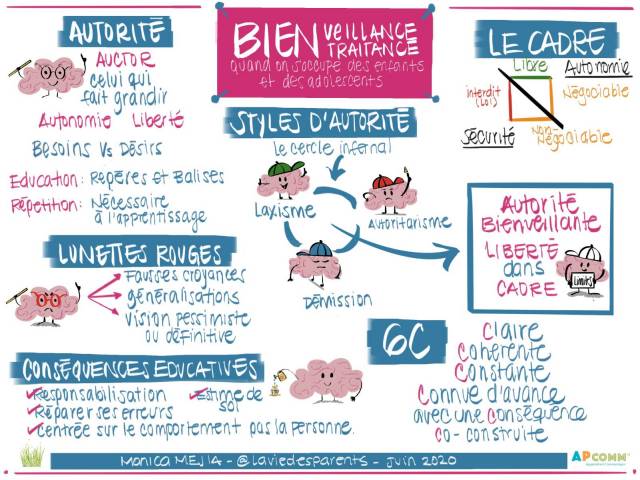 AUTORITÉ
AUCTOR
celui qui
fait grandir
Autonomie Liberté
Besoins Vs Désirs
Education: Repères et Balises
Répétition: Nécessaire
à l'apprentissage
BIENVEILLANCE
TRAITANCE
quand on s'occupe des enfants
et des adolescents
LE CADRE
Libre Autonomie
interdit
(LOI)
Négociable
Sécurité
NON-
Négociable
STYLES D'AUTORITÉ
Le cercle infernal
Laxisme
Autoritarisme
Démission
Autorité
Bienveillante
LIBERTÉ
dans
CADRE
Limits
LUNETTES ROUGES
Fausses croyances
généralisations
vision pessimiste
ou définitive
6C
Claire
Cohérente
Constante
Connue d'avance
avec une conséquence
co-construite
CONSÉQUENCES EDUCATIVES
Responsabilisation
Estime de
soi
Réparer ses erreurs
Centrée sur le comportement pas la personne.
MONICA MEJIA - @laviedesparents - Juin 2020
APCOMM